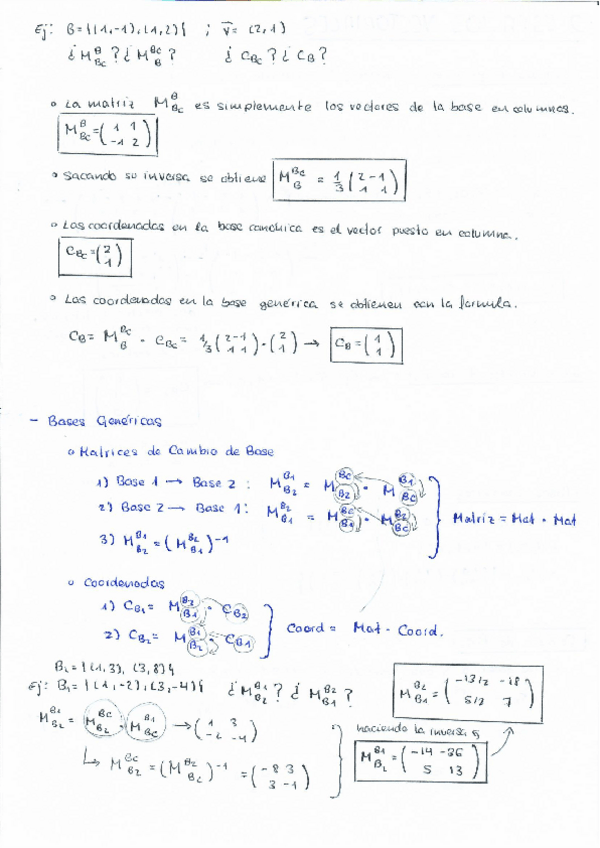 Ej: B={(1,-1),(1,2)} ; v⃗=(2,1)
¿M_Bc^B? ¿M_B^Bc? ¿C_Bc? ¿C_B?
• La matriz M_Bc^B es simplemente los vectores de la base en columnas.
M_Bc^B=(1 1
-1 2)
• Sacando su inversa se obtiene M_B^Bc = 1/3 (2 -1
1 1)
• Las coordenadas en la base canónica es el vector puesto en columna.
C_Bc=(2
1)
• Las coordenadas en la base genérica se obtienen con la formula.
C_B = M_B^Bc · C_Bc = 1/3 (2 -1
1 1) · (2
1) → C_B=(1
1)
- Bases Genéricas
• Matrices de Cambio de Base
1) Base 1 → Base 2 : M_B2^B1 = M_B2^Bc · M_Bc^B1
2) Base 2 → Base 1 : M_B1^B2 = M_B1^Bc · M_Bc^B2
Matriz = Mat · Mat
3) M_B2^B1 = (M_B1^B2)^-1
• Coordenadas
1) C_B1 = M_B1^B2 · C_B2
2) C_B2 = M_B2^B1 · C_B1
Coord = Mat · Coord.
B2={(1,3), (3,8)}
Ej: B1={(1,-2),(3,-4)} ¿M_B2^B1? ¿M_B1^B2?
M_B1^B2 = (-13/2 -18
5/2 7)
M_B2^B1 = M_B2^Bc · M_Bc^B1 → (1 3
-2 -4)
haciendo la inversa
↳ M_B2^Bc = (M_Bc^B2)^-1 = (-8 3
3 -1)
M_B2^B1 = (-14 -36
5 13)